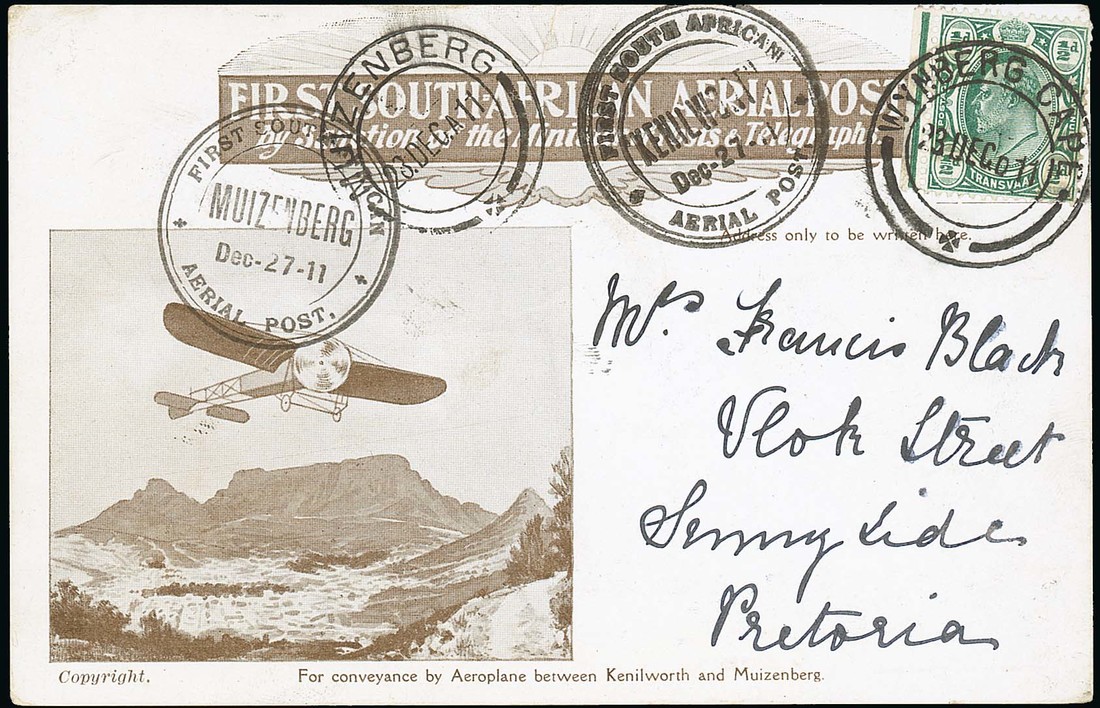 FIRST SOUTH-AFRICAN AERIAL POST
by Sanction of the Minister Posts & Telegraphs
MUIZENBERG
23.DEC.A11
FIRST SOUTH AFRICAN
KENILWORTH
Dec-27-11
AERIAL POST.
WYNBERG CAPE
DEC
½d
POSTAGE
TRANSVAAL
FIRST SOUTH AFRICAN
MUIZENBERG
Dec-27-11
AERIAL POST.
Address only to be written here.
Mrs Francis Black
Vlok Street
Sunny Side
Pretoria
Copyright.
For conveyance by Aeroplane between Kenilworth and Muizenberg.